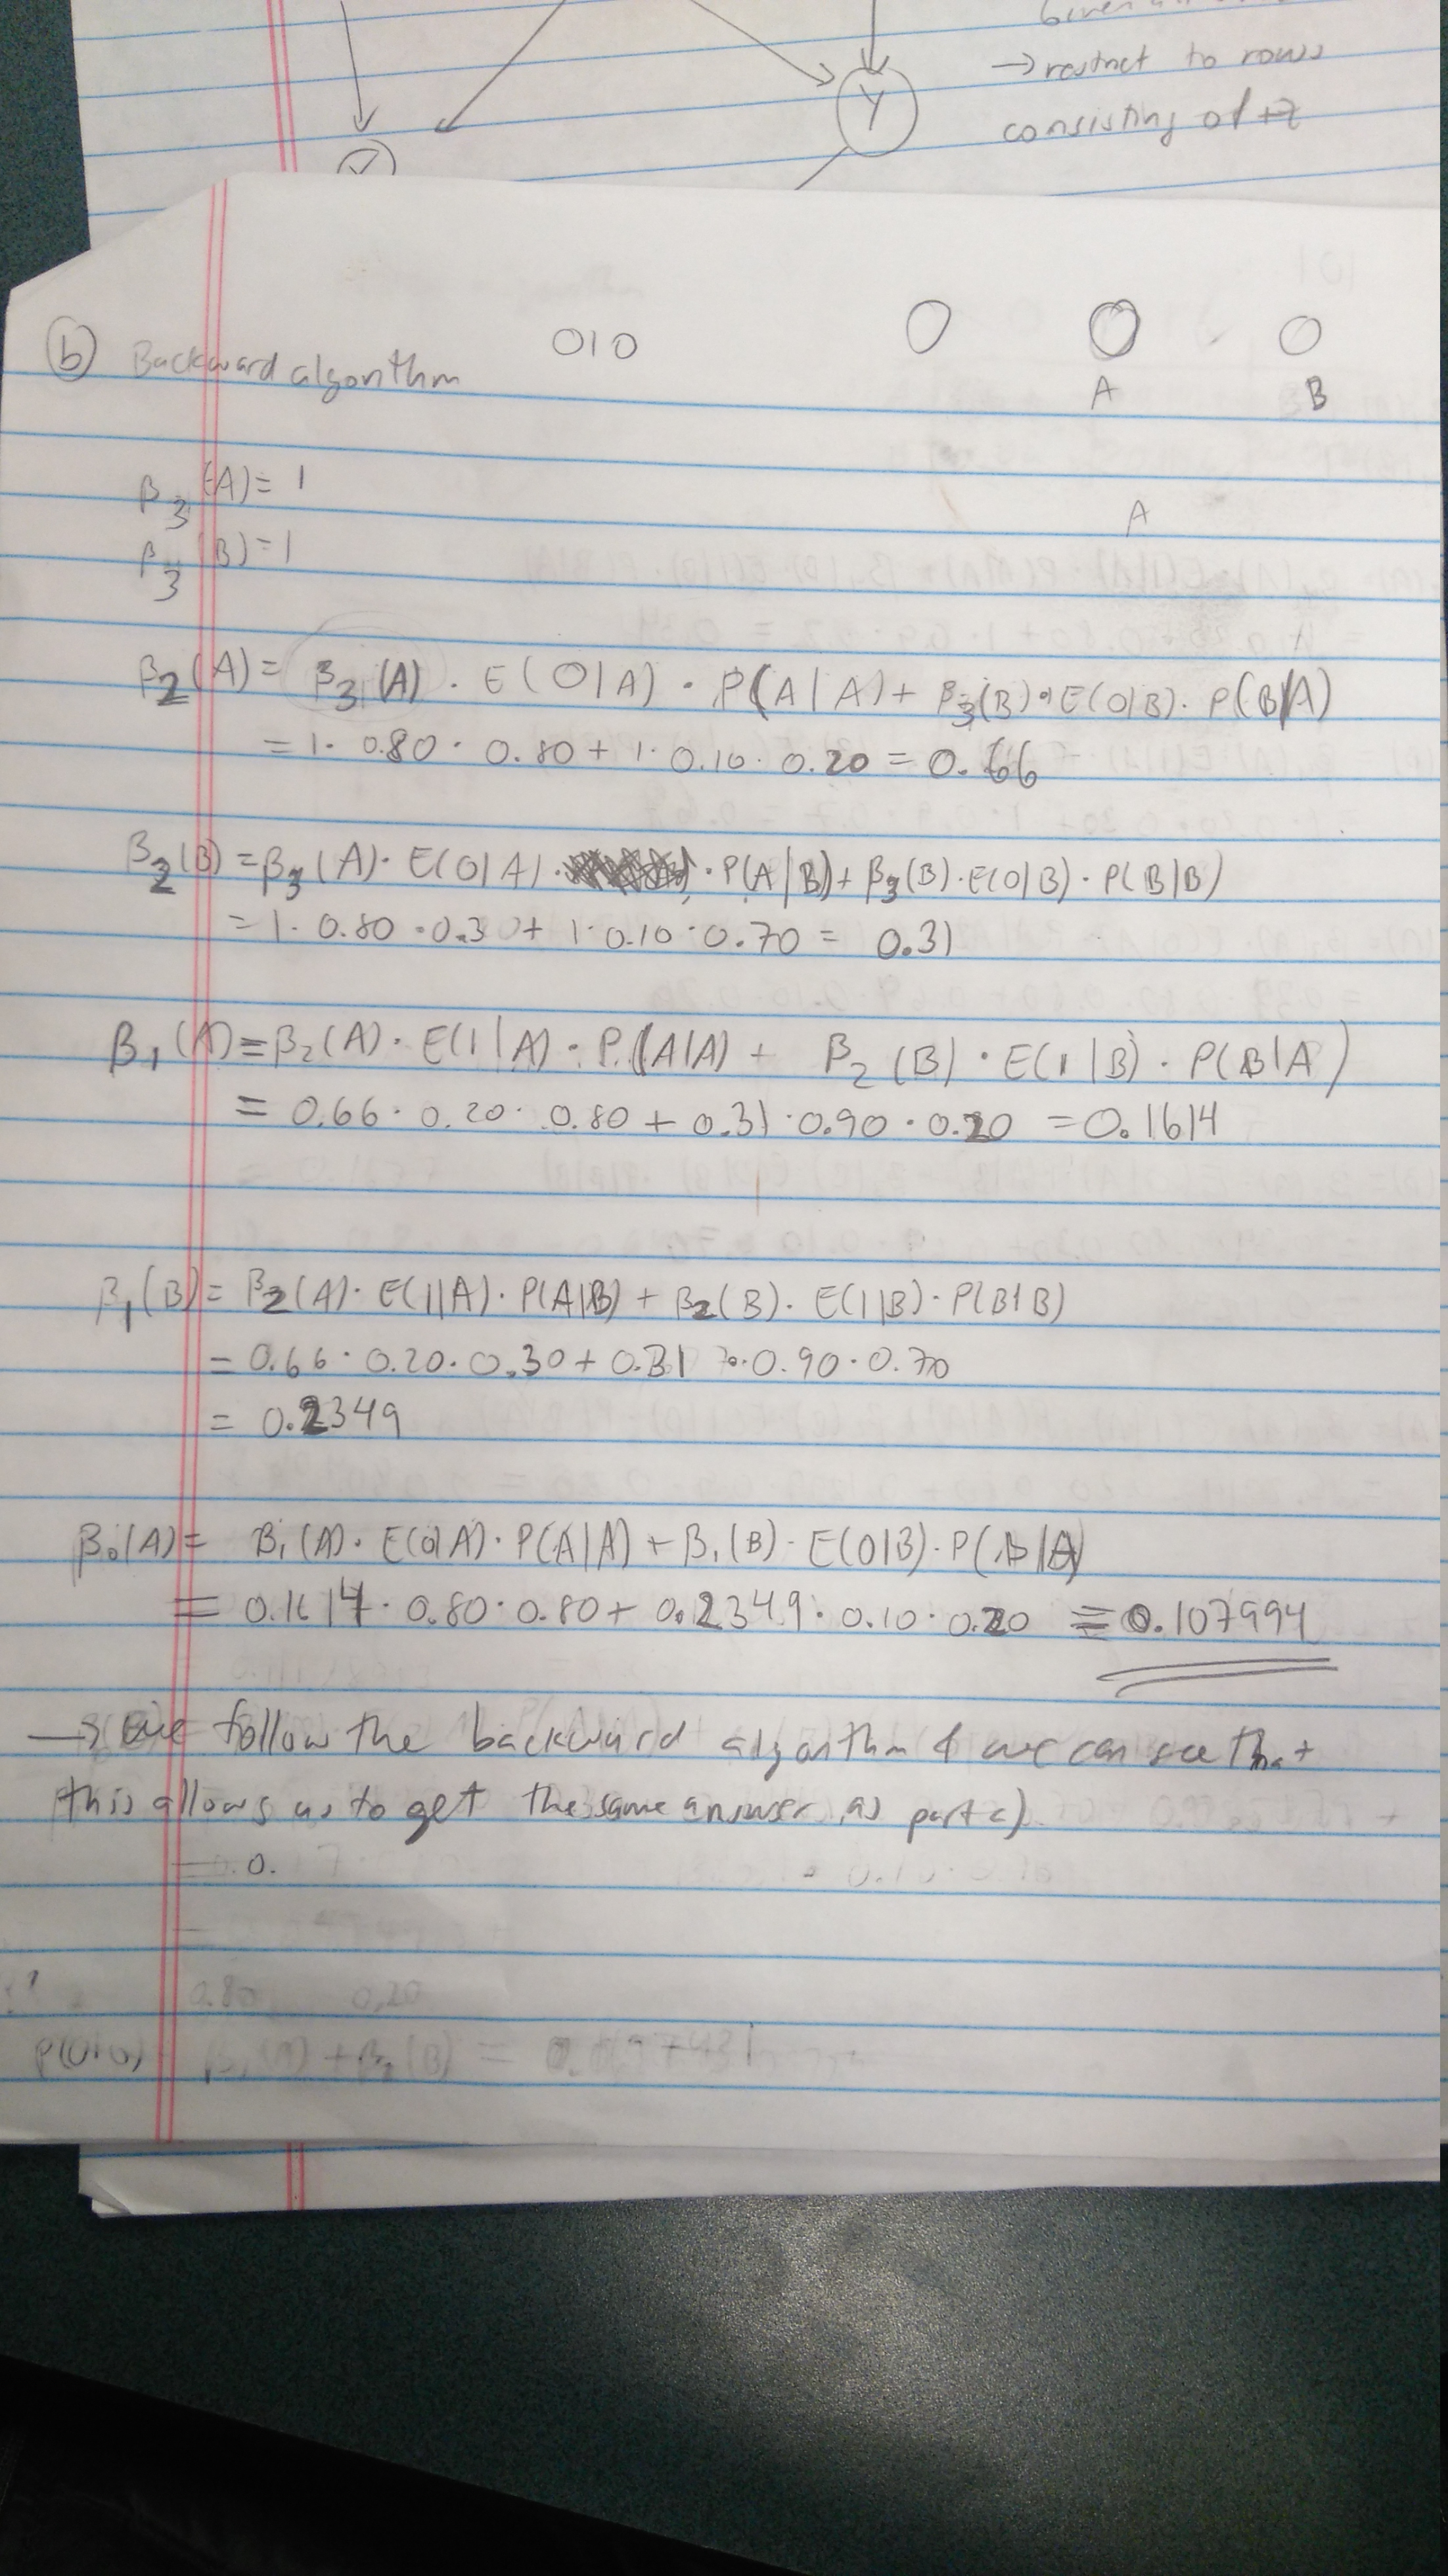 Y
→ restrict to rows
consisting of +z
(b) Backward algorithm 010
A B
β3(A) = 1
A
β3(B) = 1
β2(A) = β3(A) · E(0|A) · P(A|A) + β3(B) · E(0|B) · P(B|A)
= 1 · 0.80 · 0.80 + 1 · 0.10 · 0.20 = 0.66
β2(B) = β3(A) · E(0|A) · P(A|B) + β3(B) · E(0|B) · P(B|B)
= 1 · 0.80 · 0.30 + 1 · 0.10 · 0.70 = 0.31
β1(A) = β2(A) · E(1|A) · P(A|A) + β2(B) · E(1|B) · P(B|A)
= 0.66 · 0.20 · 0.80 + 0.31 · 0.90 · 0.20 = 0.1614
β1(B) = β2(A) · E(1|A) · P(A|B) + β2(B) · E(1|B) · P(B|B)
= 0.66 · 0.20 · 0.30 + 0.31 · 0.90 · 0.70
= 0.2349
β0(A) = β1(A) · E(0|A) · P(A|A) + β1(B) · E(0|B) · P(B|A)
= 0.1614 · 0.80 · 0.80 + 0.2349 · 0.10 · 0.20 = 0.107994
→ we follow the backward algorithm & we can see that
this allows us to get the same answer as part a)
= 0.
0.80 0.20